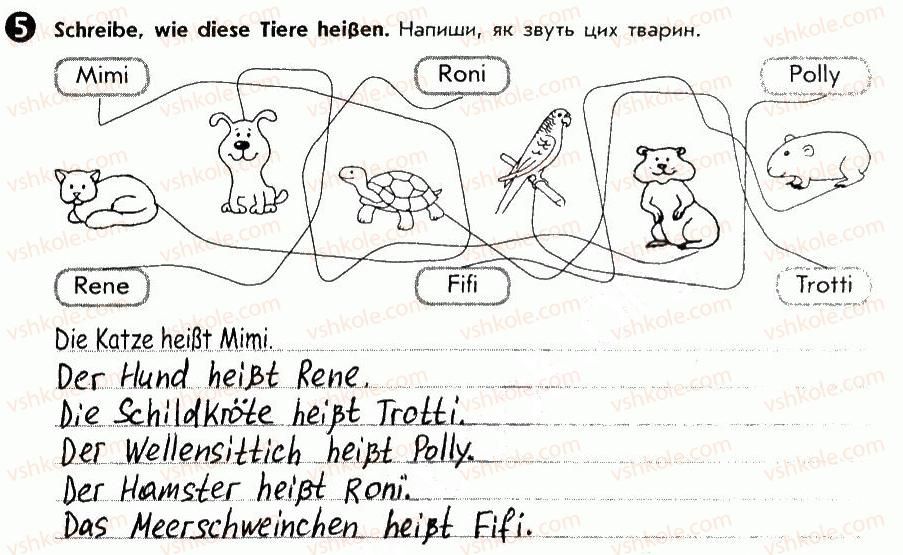 5 Schreibe, wie diese Tiere heißen. Напиши, як звуть цих тварин.
Mimi Roni Polly
Rene Fifi Trotti
Die Katze heißt Mimi.
Der Hund heißt Rene.
Die Schildkröte heißt Trotti.
Der Wellensittich heißt Polly.
Der Hamster heißt Roni.
Das Meerschweinchen heißt Fifi.
vshkole.com